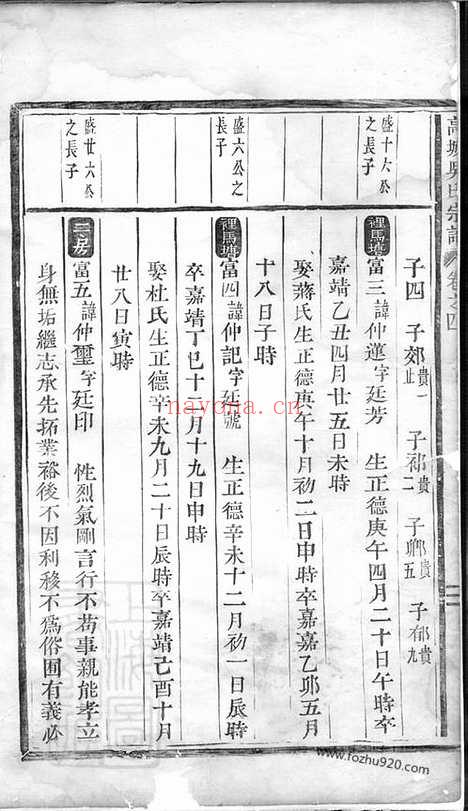 高城吳氏宗譜 卷之四
子四 子郊貴一止 子祁貴二 子鄉貴五 子郁貴九
盛十六公之長子
裡馬塘 富三諱仲蓮字廷芳 生正德庚午四月二十日午時卒
嘉靖乙丑四月廿五日未時
娶蔣氏生正德庚午十月初二日申時卒嘉嘉乙邜五月
十八日子時
盛六公之長子
裡馬塘 富四諱仲記字廷號 生正德辛未十二月初一日辰時
卒嘉靖丁巳十二月十九日申時
娶杜氏生正德辛未九月二十日辰時卒嘉靖己酉十月
廿八日寅時
盛廿六公之長子
二房 富五諱仲璽字廷印 性烈氣剛言行不苟事親能孝立
身無垢繼志承先拓業裕後不因利移不爲俗囿有義必
nayona.cn
www.fozhu920.com